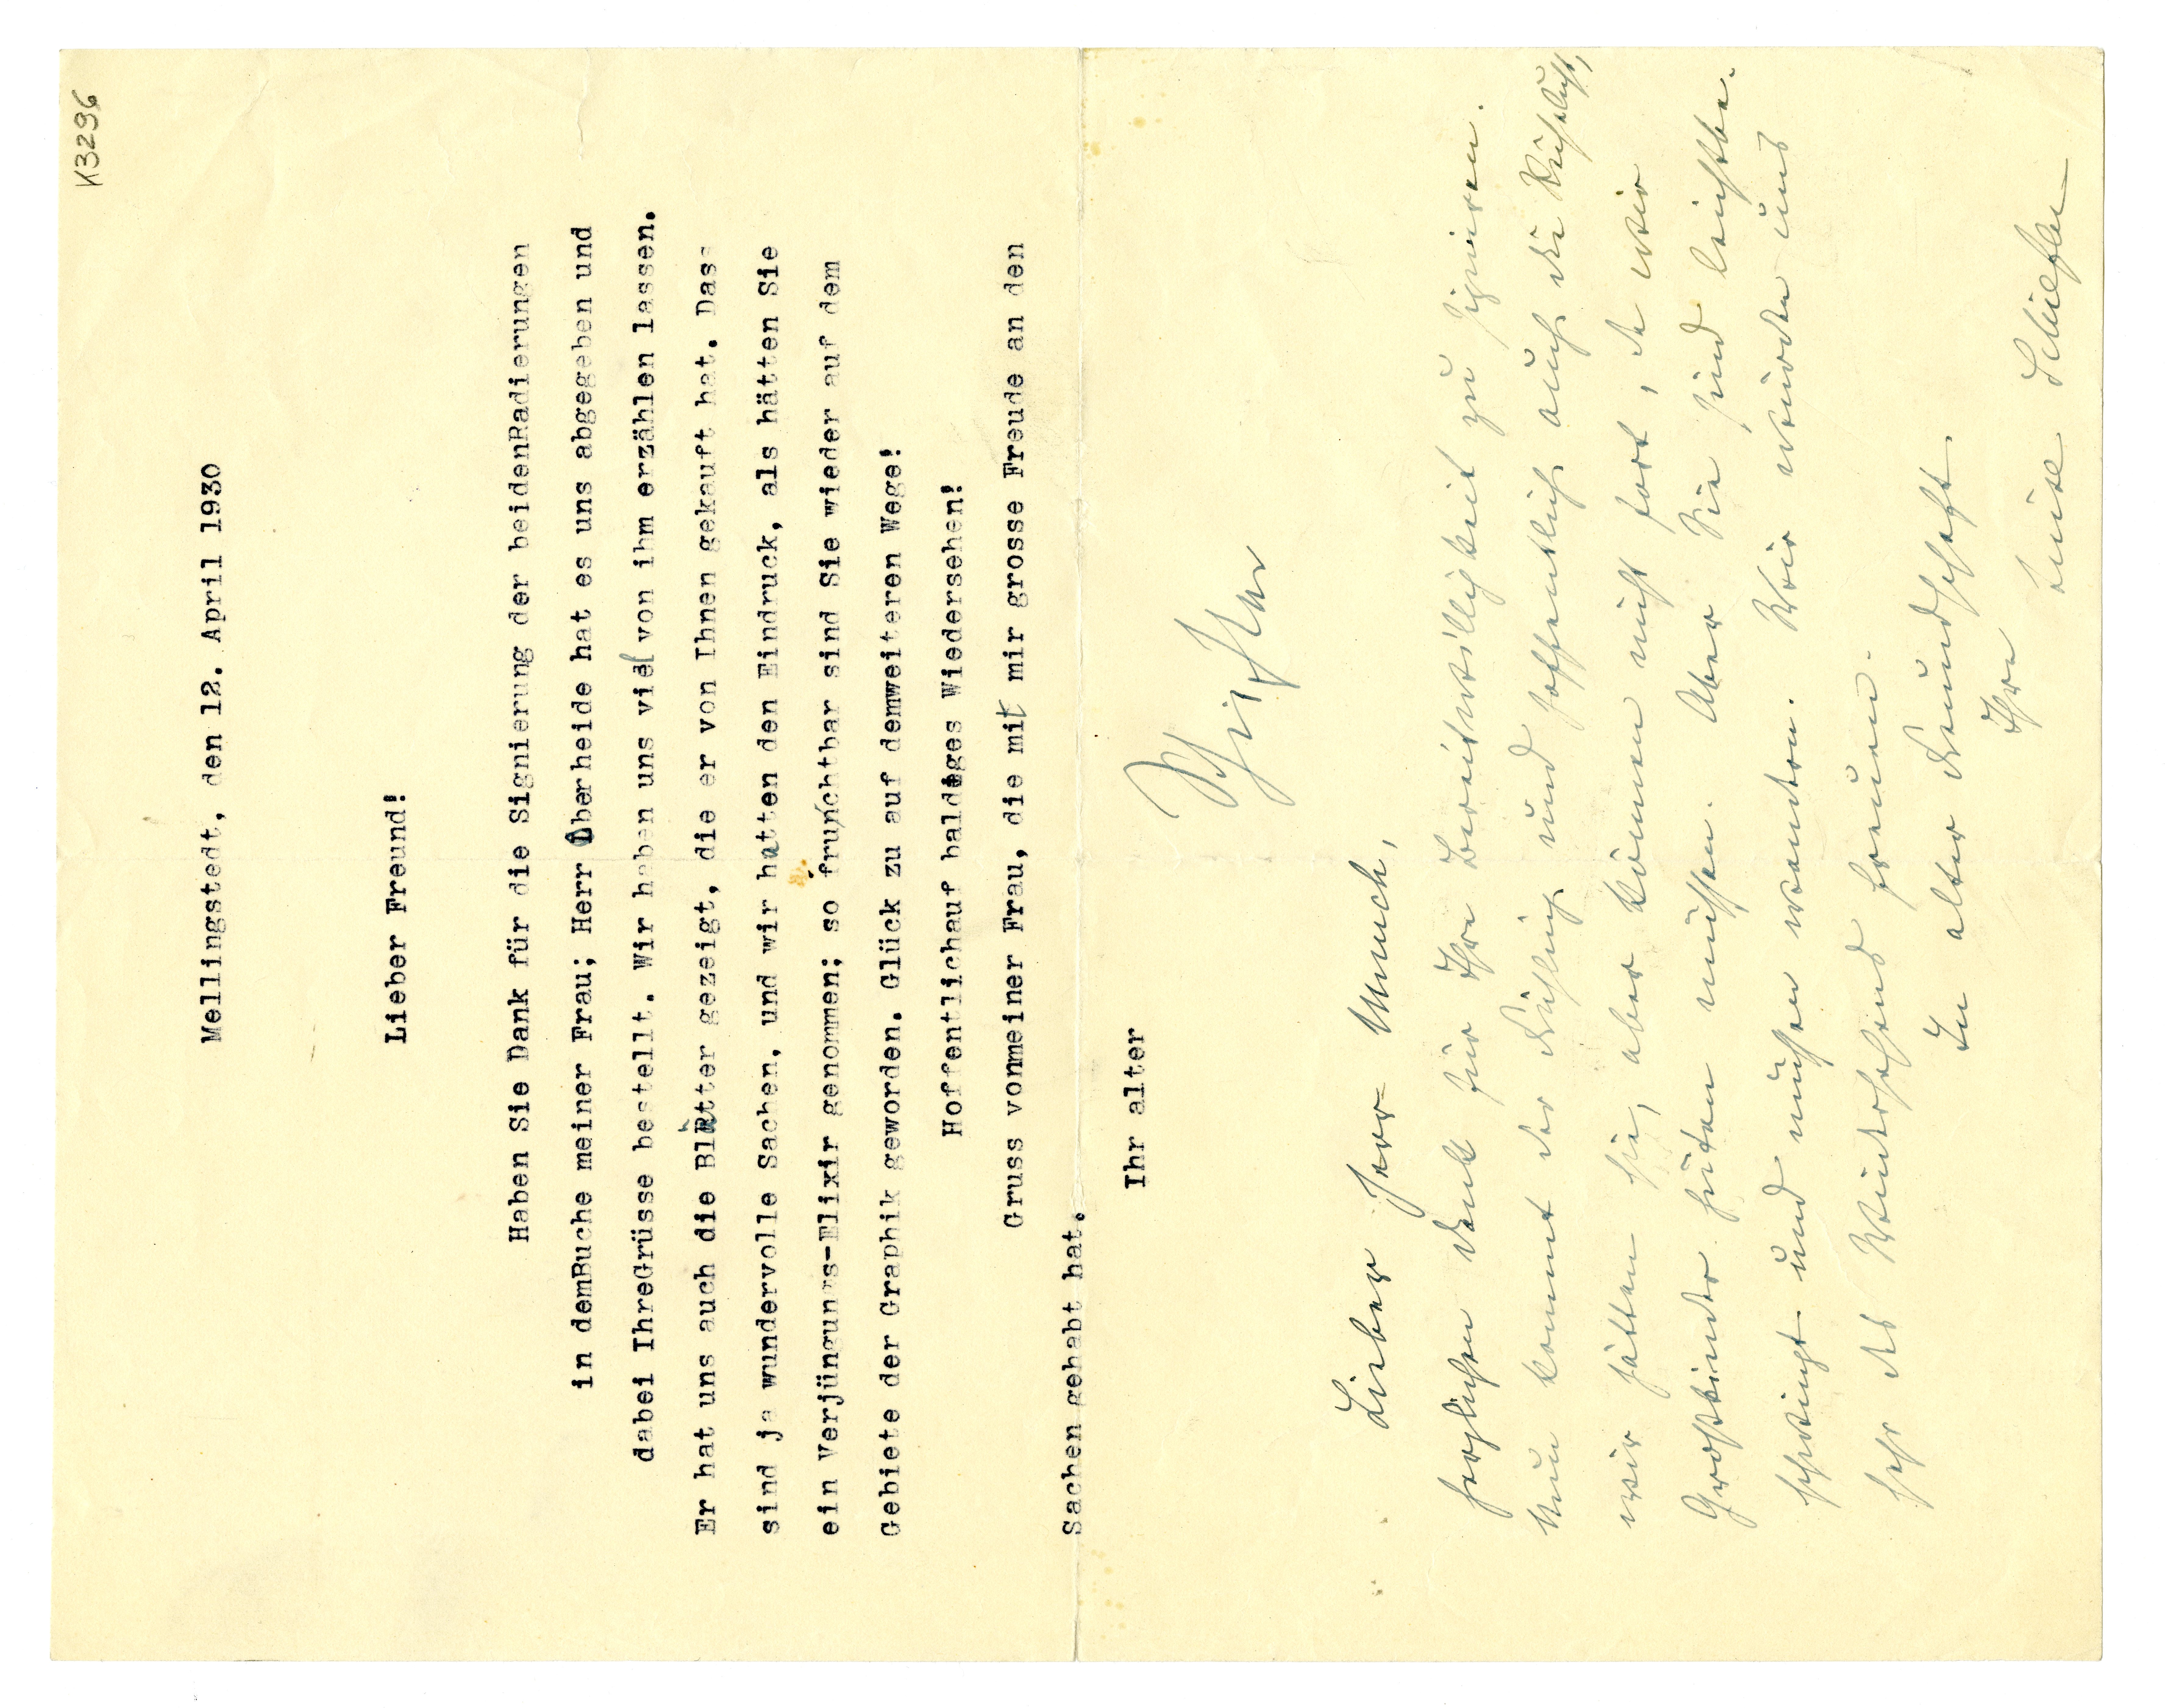 K3296
Mellingstedt, den 12. April 1930
Lieber Freund!
Haben Sie Dank für die Signierung der beidenRadierungen
in demBuche meiner Frau; Herr Überheide hat es uns abgegeben und
dabei IhreGrüsse bestellt. Wir haben uns viel von ihm erzählen lassen.
Er hat uns auch die Blätter gezeigt, die er von Ihnen gekauft hat. Das
sind ja wundervolle Sachen, und wir hatten den Eindruck, als hätten Sie
ein Verjüngungs-Elixir genommen; so fruchtbar sind Sie wieder auf dem
Gebiete der Graphik geworden. Glück zu auf demweiteren Wege!
Hoffentlichauf baldiges Wiedersehen!
Gruss vonmeiner Frau, die mit mir grosse Freude an den
Sachen gehabt hat.
Ihr alter
Schiefler
Lieber Herr Munch,
herzlichen Dank für Ihre Bereitwilligkeit zu signieren.
Nun kommt der Frühling und hoffentlich auch die Reiselust,
wir hätten sie, aber können nicht fort, da wir
Grosskinder hüten müssen. Aber Sie sind leichter
und müssen wandern. Wir würden uns
sehr des Wiedersehens freuen.
In alter Freundschaft
Ihre
Luise Schiefler